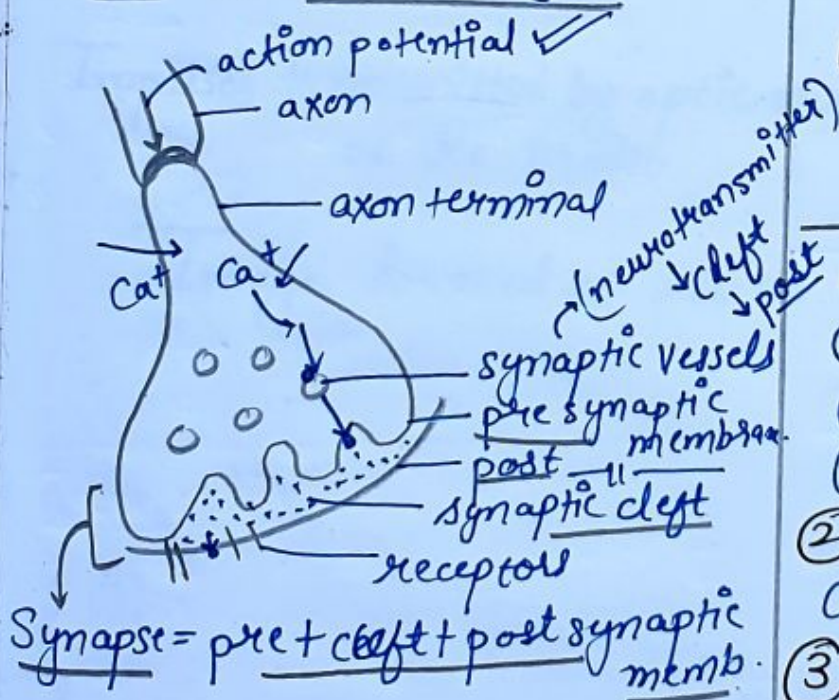 action potential
axon
axon terminal
Ca⁺
Ca⁺
(neurotransmitter)
cleft
post
synaptic vessels
pre synaptic
membran.
post —〃—
synaptic cleft
receptors
Synapse = pre + cleft + post synaptic
memb.
2
3